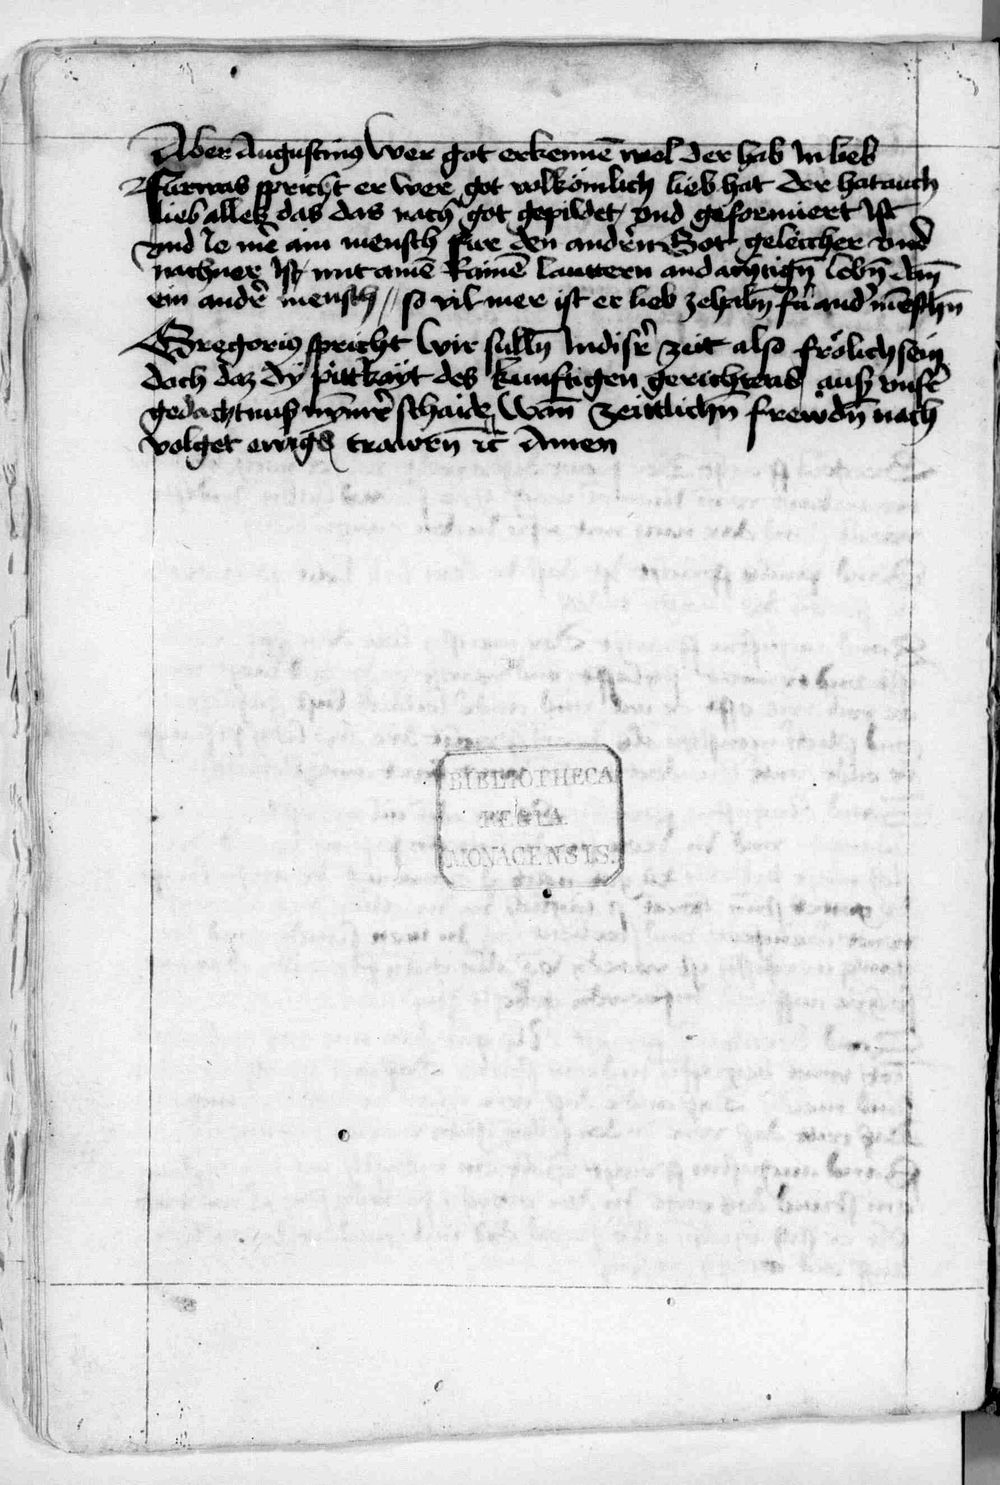 Aber Augustinus Wer got erkennē wol der hab In lieb
Fürwas spricht er wer got volkömlich lieb hat der hat auch
lieb alles das das nach got gepildet vnd geformiert Ist
vnd Ie mē ain mensch für den andern Got geleicher vnd
nachner Ist mit ainē Rainē lauttern andachtign lebn dan
ein andr̄ mensch // so vil mer ist er lieb zehabn für and' mēschn
Gregorius spricht Wir sülln In disr̄ zeit also frölich sein
doch daz dy pittkayt des kunftigen gerichtes auß vnsr̄
gedachtnuß nymr̄ schaide Wan̄ zeittlichn̄ frewdn̄ nach
volget ewigs trawrn̄ rc̄ Amen
BIBLIOTHECA
REGIA
MONACENSIS.